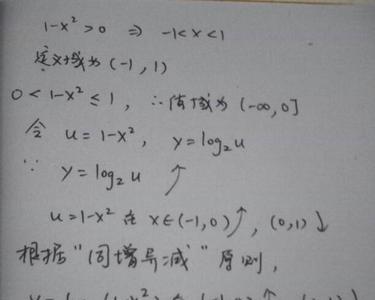 1-x²>0 ⇒ -1<x<1
定义域为(-1, 1)
0<1-x²≤1, ∴值域为(-∞,0]
令 u=1-x², y=log₂u
∵ y=log₂u ↑
u=1-x² 在 x∈(-1,0)↑, (0,1)↓
根据"同增异减"原则,